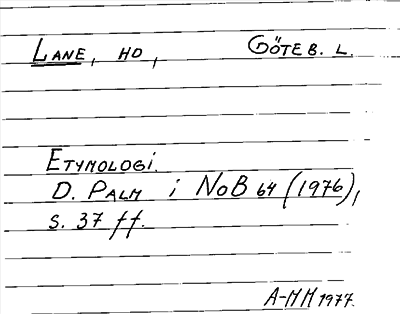 LANE, HD, GÖTEB. L.
ETYMOLOGI.
D. PALM i NoB 64 (1976),
s. 37 ff.
A-MM 1977.